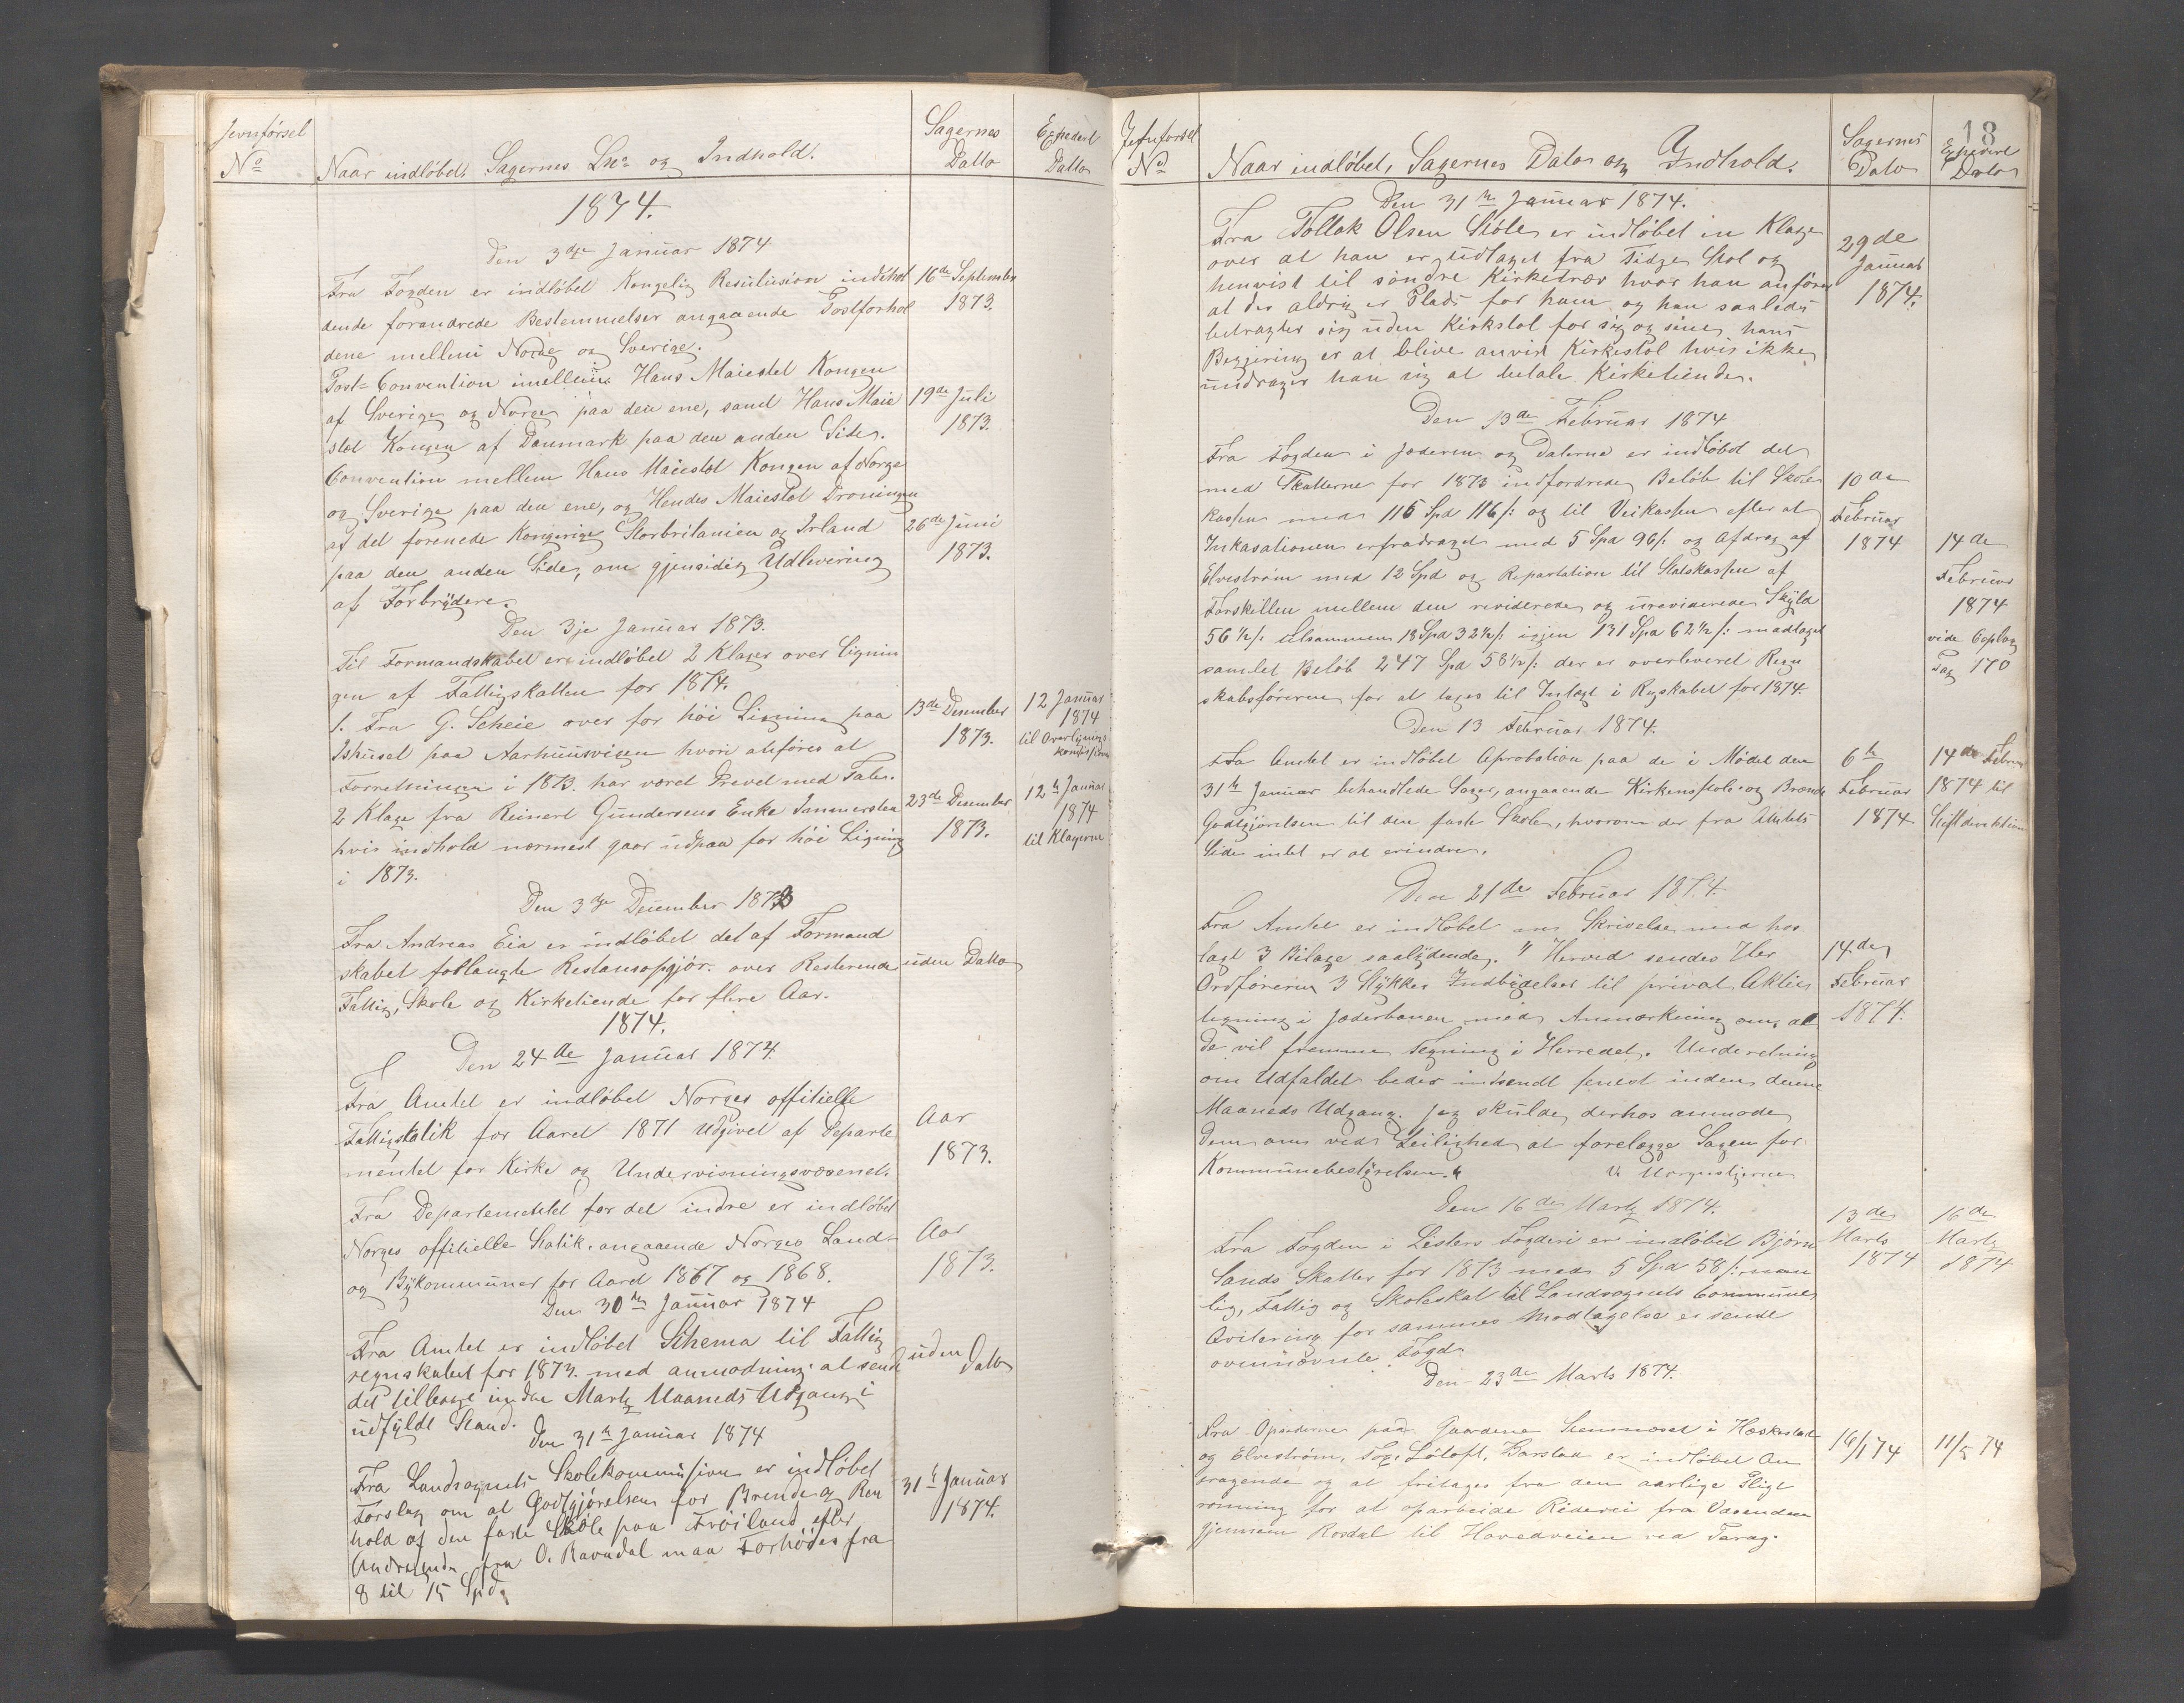 Jevnførsel
No
Naar indløbet, Sagernes No og Indhold.
Sagernes
Datto
Expedert
Datto
1874.
Den 3die Januar 1874
Fra Fogden er indløbet Kongelig Resulusion indehol
dende forandrede Bestemmelser angaaende Postforhol
dene mellem Norge og Sverige.
16de September
1873.
Post-Convention imellem Hans Maiestet Kongen
af Sverige og Norge paa den ene, samt Hans Maie
stet Kongen af Danmark paa den anden Side.
19de Juli
1873.
Convention mellem Hans Maiestet Kongen af Norge
og Sverige paa den ene, og Hendes Maiestet Droningen
af det forenede Kongerige Storbritanien og Irland
paa den anden Side, om gjensidig Udlevering
af Forbrydere.
26de Juni
1873.
Den 3je Januar 1873.
Til Formandskabet er indløbet 2 Klager over Lignin
gen af Fattigskatten for 1874.
1. Fra G. Scheie over for høi Ligning paa
Ishuset paa Aarhuusvigen hvori anføres at
Forretningen i 1873. har været Drevet med Tab.
13de Desember
1873.
12 Januar
1874
til Overlignings
komissionen
2 Klage fra Reinert Gundersens Enke Immerstein
hvis indhold nærmest gaar udpaa for høi Ligning
i 1873.
23de Desember
1873.
12te Januar
1874
til Klagerne
Den 3die December 1873
Fra Andreas Eia er indløbet det af Formand
skabet forlangte Restanseopgjør. over Resterende
Fattig, Skole og Kirketiende for flere Aar.
uden Datto
1874.
Den 24de Januar 1874.
Fra Amtet er indløbet Norges offitielle
Fattigstatik for Aaret 1871 Udgivet af Departe
mentet for Kirke og Undervisningsvæsenet.
Aar
1873.
Fra Departementet for det indre er indløbet
Norges offitielle Statik. angaaende Norges Land-
og Bykommuner for Aaret 1867 og 1868.
Aar
1873.
Den 30te Januar 1874
Fra Amtet er indløbet Schema til Fattig
regnskabet for 1873. med anmodning at sende
det tilbage inden Marts Maaneds Udgang i
udfyldt Stand.
uden Datto
Den 31te Januar 1874
Fra Landsognets Skolekommission er indløbet
Forslag om at Godtgjørelsen for Brende og Ren
hold af den faste Skole paa Frøiland efter
Andragende fra O. Ravndal maa Forhøies fra
8 til 15 Spd.
31te Januar
1874.
18
Jefnførsel
No
Naar indløbet, Sagernes Dato og Indhold.
Sagernes
Dato
Expedert
Dato
Den 31te Januar 1874.
Fra Tollak Olsen Støle er indløbet en Klage
over at han er udtaget fra Tidge Stol og
henvist til søndre Kirketvær hvor han anfører
at der aldrig er Plads for ham og han saaledes
betragter sig uden Kirkstol for sig og sine, hans
Begjering er at blive anvist Kirkestol hvis ikke
undrager han sig at betale Kirketiende.
29de
Januar
1874.
Den 13de Februar 1874
Fra Fogden i Jæderen og Dalerne er indløbet det
med Skatterne for 1873 indfordrede Beløb til Skole
kassen med 115 Spd 116 s: og til Veikassen efter at
Inkasationen erfradraget med 5 Spd 96 s. og Afdrag af
Elvestrøm med 12 Spd og Repartation til Statskassen af
Forskillen mellem den reviderede og ureviderede Skyld
56 1/2 s: tilsammen 18 Spd 32 1/2 s: igjen 131 Spd 62 1/2 s: modtaget
samlet Beløb 247 Spd 58 1/2 s: der er overleveret Regn
skabsføreren for at tages til Intægt i Regskabet for 1874.
10de
Februar
1874
14de
Februar
1874
vide Copibog
Pag 170
Den 13 Februar 1874.
Fra Amtet er indløbet Aprobation paa de i Mødet den
31te Januar behandlede Sager, angaaende Kirkenstole og Brænde
Godtgjørelsen til den faste Skole, hvorom der fra Amtets
Side intet er at erindre.
6te
Februar
1874
14de Februar
1874 til
Stiftdirektionen
Den 21de Februar 1874.
Fra Amtet er indløbet en Skrivelse med hos
lagt 3 Bilage saalydende. "Herved sendes Her
Ordføreren 3 Stykker Indbydelser til privat Aktie
tegning i Jæderbanen med Anmærkning om, at
De vil fremme Tegning i Herredet. Underetning
om Udfaldet bedes indsendt senest inden denne
Maaneds Udgang. Jeg skulde derhos anmode
Dem om ved Leilighed at forelægge Sagen for
Kommunebestyrelsen."
14de
Februar
1874.
V. Morgenstjerne
Den 16de Marts 1874.
Fra Fogden i Listers Fogderi er indløbet Bjørn
sands Skatter for 1873 med 5 Spd 58 s: nem
lig, Fattig og Skoleskat til Landsognets Commune,
Qvitering for sammes Modtagelse er sendt
ovennævnte Fogd.
13de
Marts
1874
16de
Marts
1874
Den 23de Marts 1874.
Fra Opsiderne paa Gaardene Stemmeset i Heskestad
og Elvestrøm, Løtoft, Barstad er indløbet An
dragende og at fritages fra den aarlige Pligt
rømning for at oparbeide Rideveien fra Vasenden
gjennem Rosdal til Hovedveien ved Tarag.
16/1 74
11/5 74